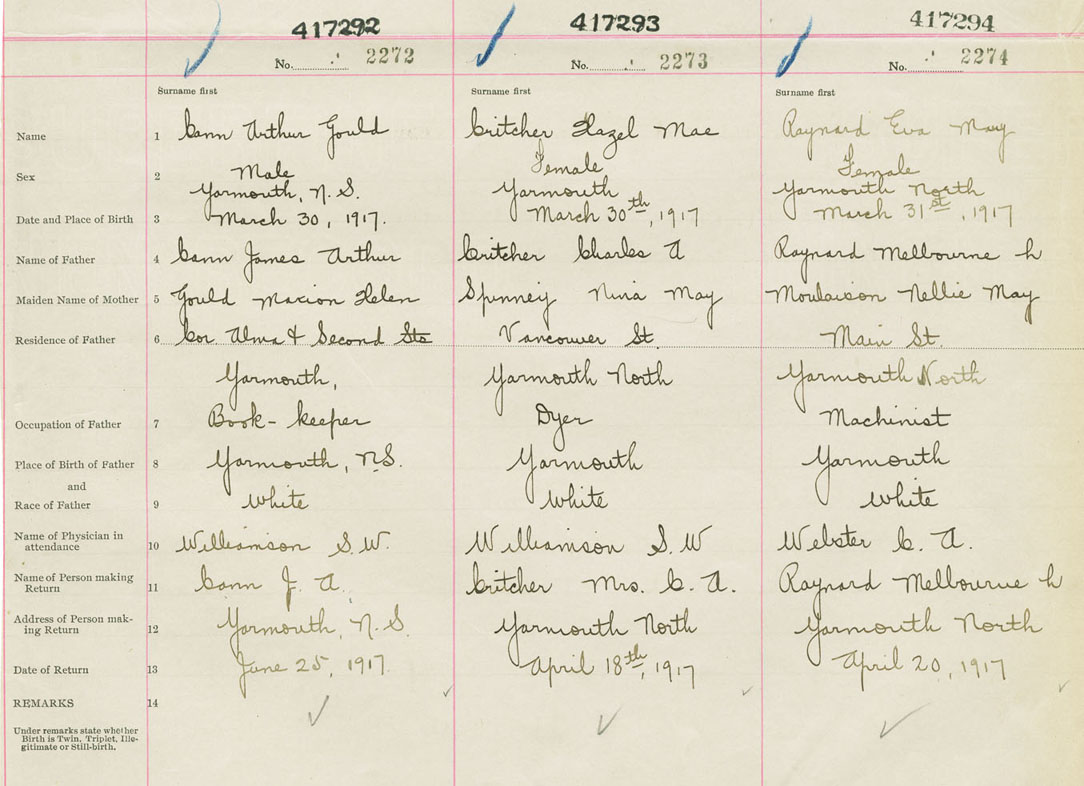 417292 417293 417294
No. 2272 No. 2273 No. 2274
Surname first Surname first Surname first
Name 1 Cann Arthur Gould Critcher Hazel Mae Raynard Eva May
Sex 2 Male Female Female
Yarmouth, N.S. Yarmouth Yarmouth North
Date and Place of Birth 3 March 30, 1917. March 30th, 1917 March 31st, 1917
Name of Father 4 Cann James Arthur Critcher Charles A Raynard Melbourne h
Maiden Name of Mother 5 Gould Marion Helen Spinney Nina May Moulaison Nellie May
Residence of Father 6 Cor. Alma & Second Sts Vancouver St. Main St.
Yarmouth, Yarmouth North Yarmouth North
Occupation of Father 7 Book-keeper Dyer Machinist
Place of Birth of Father 8 Yarmouth, N.S. Yarmouth Yarmouth
and
Race of Father 9 White White White
Name of Physician in
attendance 10 Williamson S.W. Williamson S.W Webster C. A.
Name of Person making
Return 11 Cann J. A. Critcher Mrs. C. A. Raynard Melbourne h
Address of Person mak-
ing Return 12 Yarmouth, N.S. Yarmouth North Yarmouth North
Date of Return 13 June 25, 1917. April 18th, 1917 April 20, 1917
REMARKS 14
Under remarks state whether
Birth is Twin, Triplet, Ille-
gitimate or Still-birth.